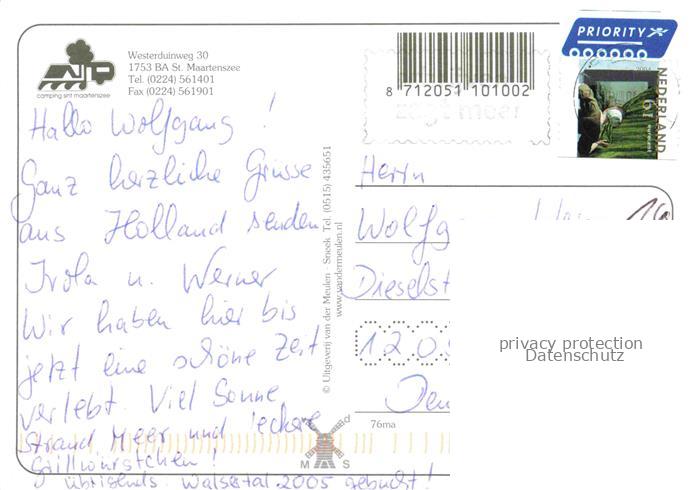 Westerduinweg 30
1753 BA St. Maartenszee
Tel. (0224) 561401
Fax (0224) 561901
camping sint maartenszee
8 712051 101002
zegt meer
PRIORITY
NEDERLAND
61
Hallo Wolfgang!
Ganz herzliche Grüsse
aus Holland senden
u. Werner
Wir haben hier bis
jetzt eine schöne Zeit
verlebt. Viel Sonne
Strand Meer und leckere
Grillwürstchen!
übrigends Walsertal 2005 gebucht!
© Uitgeverij van der Meulen - Sneek Tel. (0515) 435651
www.vandermeulen.nl
Herrn
Wolfg
Dieselst
12.0
76ma
v d
M S
privacy protection
Datenschutz